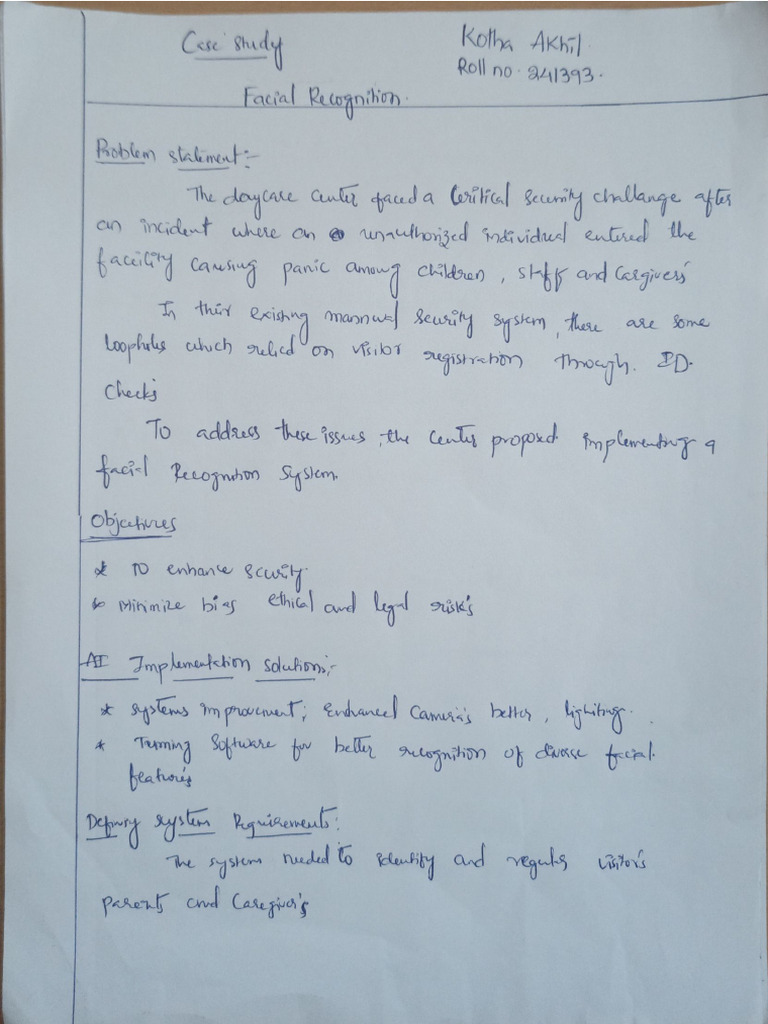 Case study
Kotha Akhil
Roll no. 241393.
Facial Recognition.
Problem statement:-
The daycare center faced a Critical security challange after
an incident where an unauthorized individual entered the
facility causing panic among children, staff and Cargivers
In their existing mannual security system, there are some
loopholes which relied on visitor registration through. ID.
checks
To address these issues, the center proposed implementing a
facial Recognition System.
Objectives
* To enhance security.
* Minimize bias ethical and legal risk's
AI Implementation Solutions:-
* Systems improvement; Enhanced Camera's better, lighiting.
* Software for better recognition of diverse facial.
feature's
Defining system Requirements:
The system needed to identify and visitor's
parents and Caregiver's